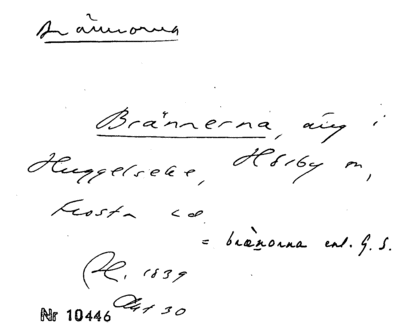 Brännorna
Brännerna, äng i
Huggelseke, Hörby sn,
Frosta hd
= brä̀norna enl. G. S.
1839
Akt 30
Nr 10446